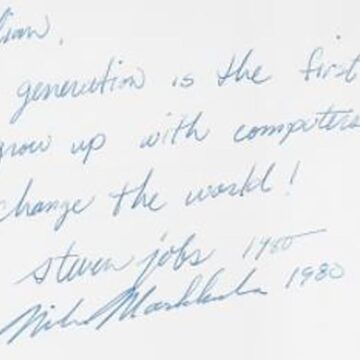 lian,
generation is the first
grow up with computers
change the world!
steven jobs 1980
Mike Markkula 1980